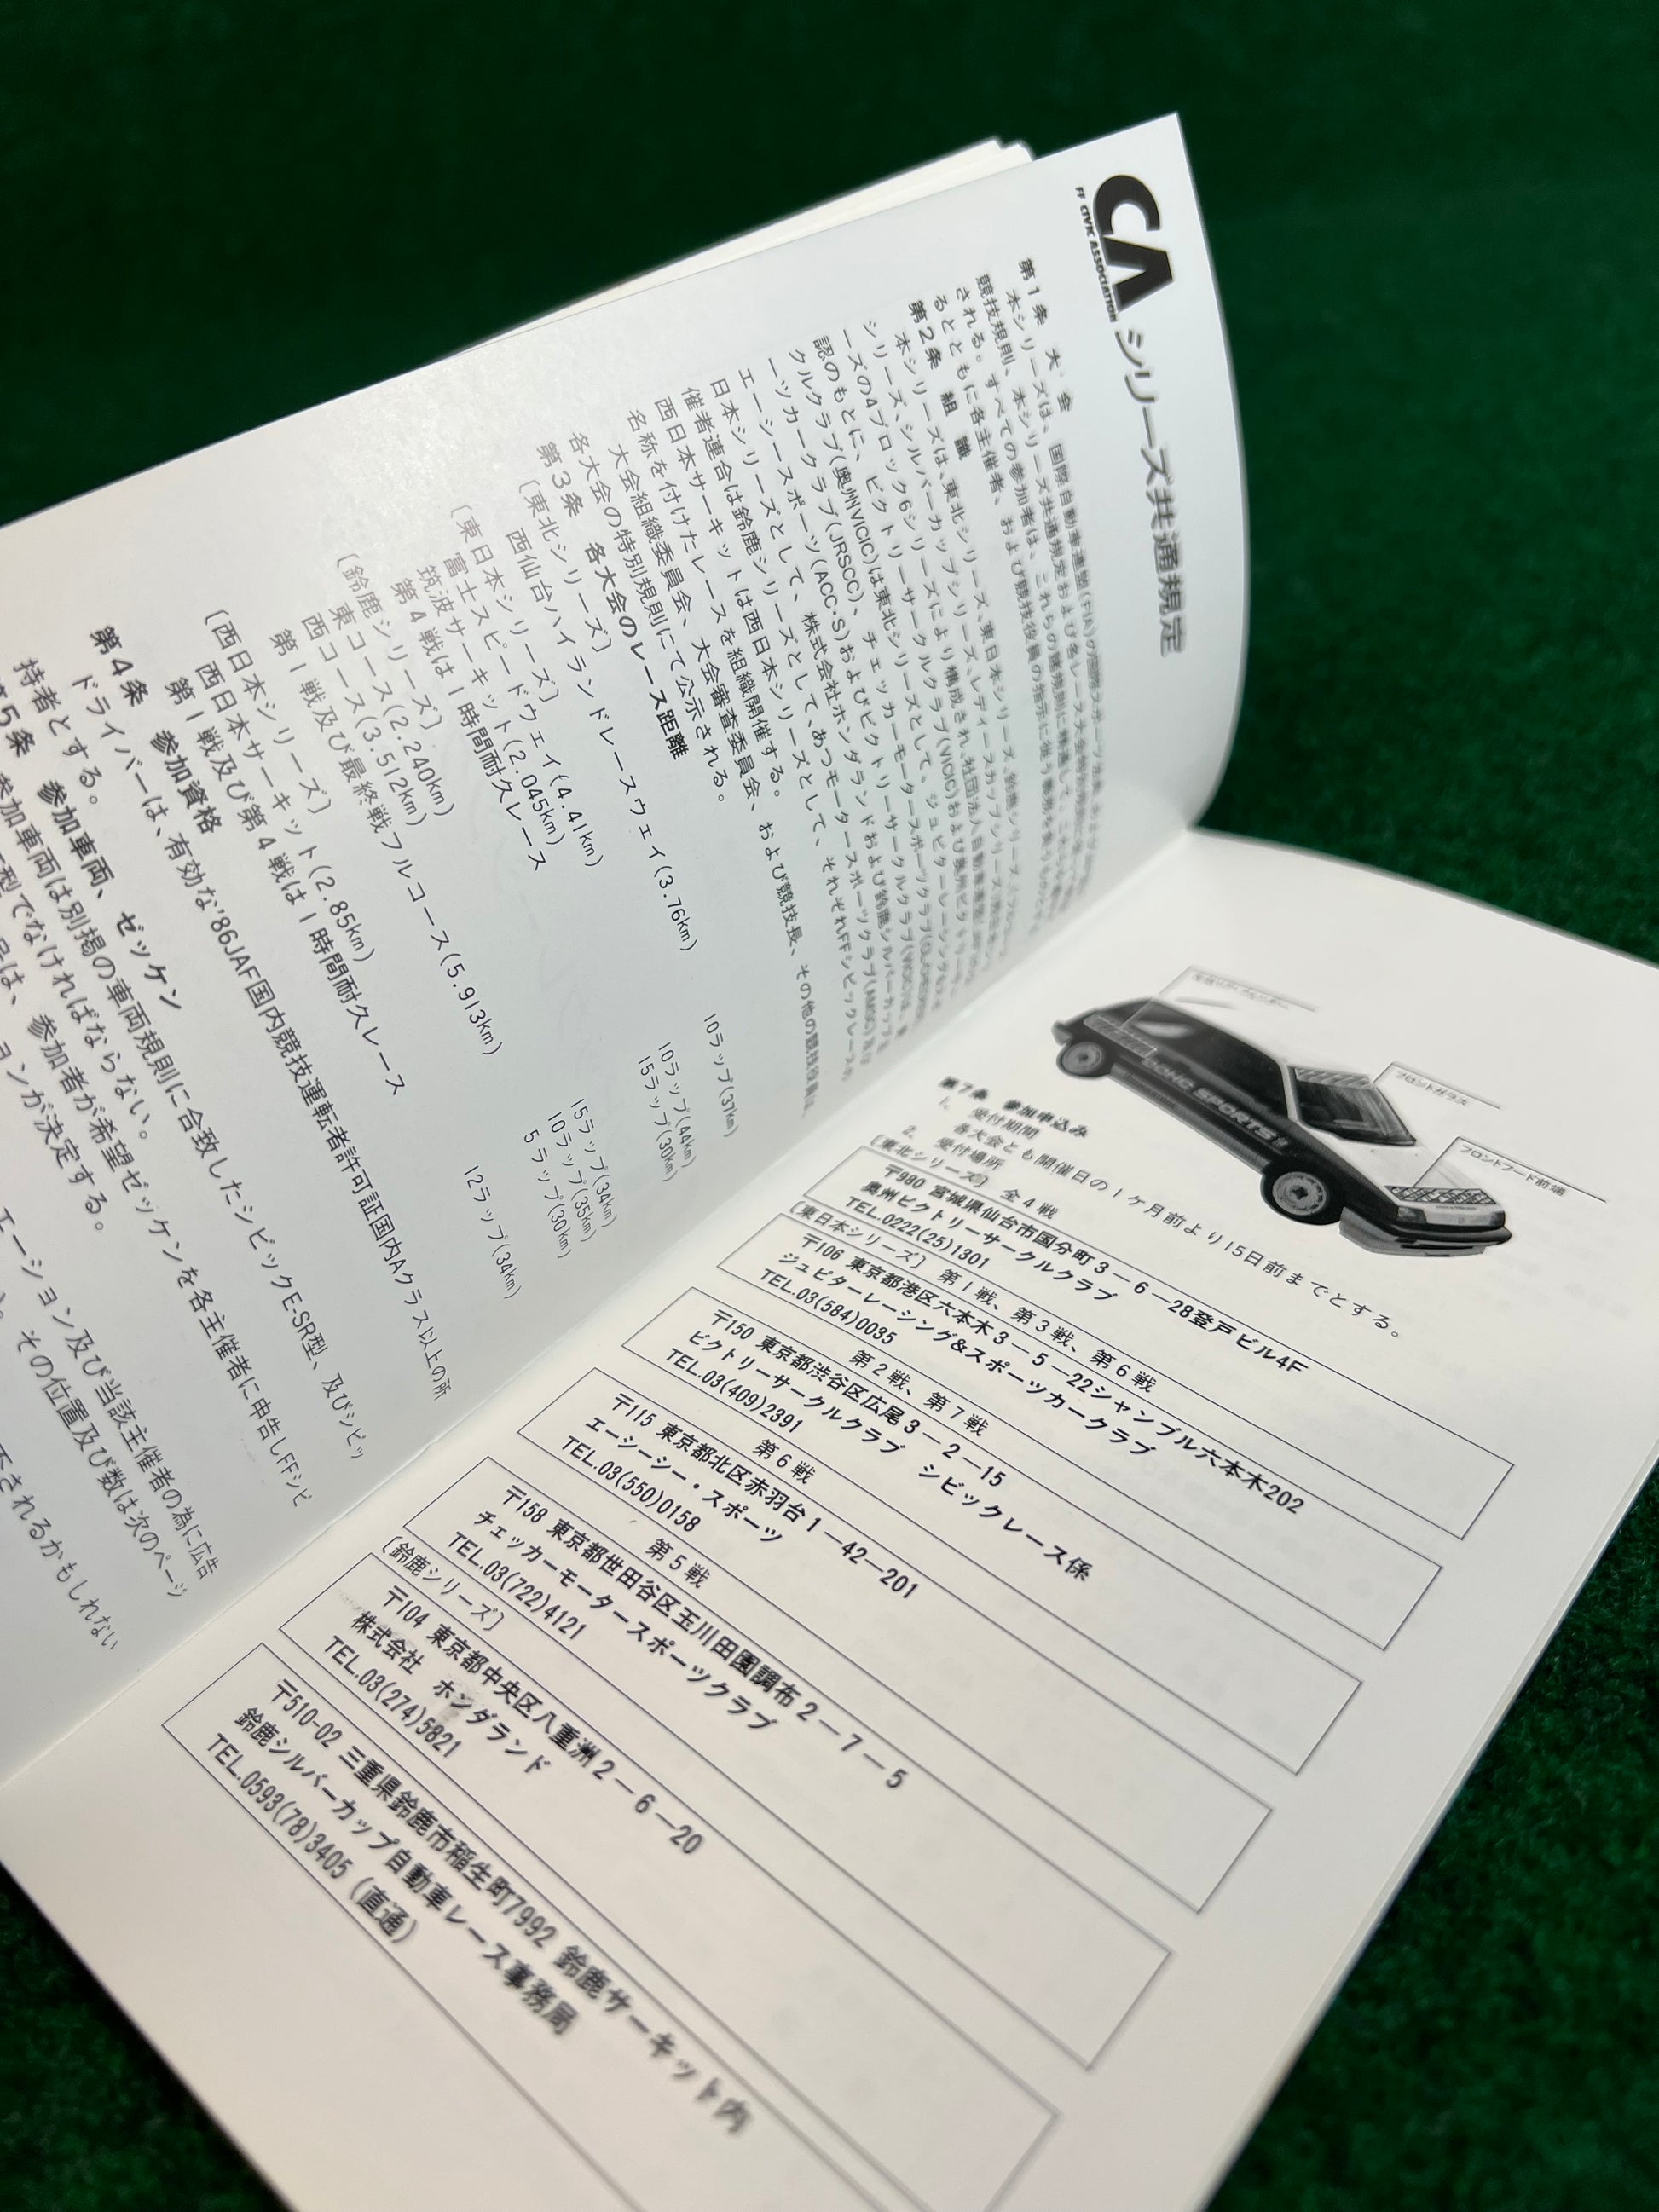 CA
FF CIVIC ASSOCIATION
シリーズ共通規定
第1条 大会
本シリーズは、国際自動車連盟(FIA)の国際スポーツ法典
競技規則、本シリーズ共通規定および各レース大会特別規則
される。すべての参加者は、これらの諸規則に精通して、
るとともに各主催者、および競技役員の指示に従う義務を
第2条 組織
本シリーズは、東北シリーズ、東日本シリーズ、鈴鹿シリーズ
シリーズ、シルバーカップシリーズ、レディースカップシリーズ
ーズの4ブロック6シリーズにより構成され、社団法人自動車連盟
認のもとに、ビクトリーサークルクラブ(VICIC)および奥州ビクトリー
クルクラブ(奥州VICIC)は東北シリーズとして、ジュピターレーシング&スポ
ーツカークラブ(JRSCC)、チェッカーモータースポーツクラブ
エーシースポーツ(ACC・S)およびビクトリーサークルクラブ(VICIC)は
日本シリーズとして、株式会社ホンダランドおよび鈴鹿シルバーカップ
催者連合は鈴鹿シリーズとして、あつモータースポーツクラブ(AMSC)
西日本サーキットは西日本シリーズとして、それぞれFFシビックレースの
名称を付けたレースを組織開催する。
大会組織委員会、大会審査委員会、および競技長、その他の競技役員は、
各大会の特別規則にて公示される。
第3条 各大会のレース距離
〔東北シリーズ〕
西仙台ハイランドレースウェイ(3.76km) 10ラップ(37km)
〔東日本シリーズ〕
富士スピードウェイ(4.41km) 10ラップ(44km)
筑波サーキット(2.045km) 15ラップ(30km)
第4戦は1時間耐久レース
〔鈴鹿シリーズ〕
東コース(2.240km) 15ラップ(34km)
西コース(3.512km) 10ラップ(35km)
第1戦及び最終戦フルコース(5.913km) 5ラップ(30km)
〔西日本シリーズ〕
西日本サーキット(2.85km) 12ラップ(34km)
第1戦及び第4戦は1時間耐久レース
第4条 参加資格
ドライバーは、有効な'86JAF国内競技運転者許可証国内Aクラス以上の所
持者とする。
第5条 参加車両、ゼッケン
参加車両は別掲の車両規則に合致したシビックE-SR型、及びシビッ
型でなければならない。
は、参加者が希望ゼッケンを各主催者に申告しFFシビ
ションが決定する。
エーション及び当該主催者の為に広告
その位置及び数は次のページ
否されるかもしれない
フロントガラス
フロントフード前端
DOHC SPORTS
第7条 参加申込み
1. 受付期間
各大会とも開催日の1ケ月前より15日前までとする。
2. 受付場所
〔東北シリーズ〕 全4戦
〒980 宮城県仙台市国分町3−6−28登戸ビル4F
奥州ビクトリーサークルクラブ
TEL.0222(25)1301
〔東日本シリーズ〕 第1戦、第3戦、第6戦
〒106 東京都港区六本木3−5−22シャンブル六本木202
ジュピターレーシング&スポーツカークラブ
TEL.03(584)0035
第2戦、第7戦
〒150 東京都渋谷区広尾3−2−15
ビクトリーサークルクラブ シビックレース係
TEL.03(409)2391
第6戦
〒115 東京都北区赤羽台1−42−201
エーシー・スポーツ
TEL.03(550)0158
第5戦
〒158 東京都世田谷区玉川田園調布2−7−5
チェッカーモータースポーツクラブ
TEL.03(722)4121
〔鈴鹿シリーズ〕
〒104 東京都中央区八重洲2−6−20
株式会社 ホンダランド
TEL.03(274)5821
〒510-02 三重県鈴鹿市稲生町7992 鈴鹿サーキット内
鈴鹿シルバーカップ自動車レース事務局
TEL.0593(78)3405 (直通)